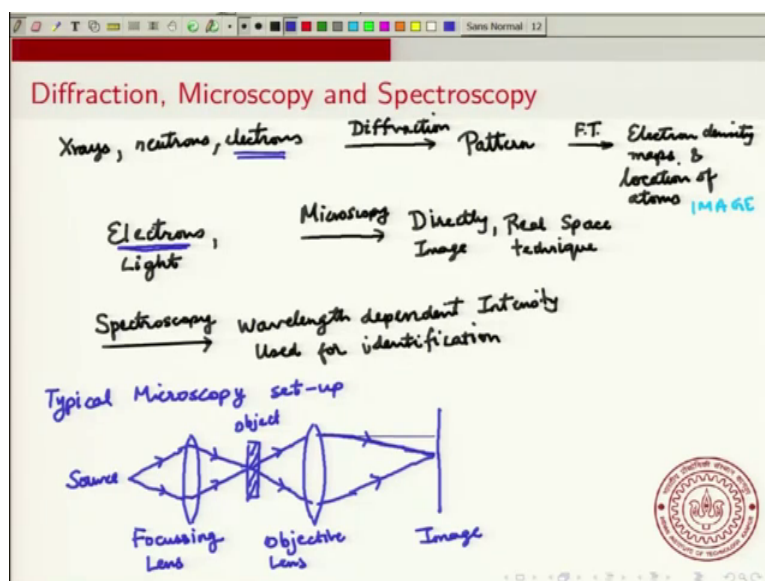 T Sans Normal 12
Diffraction, Microscopy and Spectroscopy
Xrays, neutrons, electrons Diffraction Pattern F.T. Electron density
maps, &
location of
atoms IMAGE
Electrons,
Light
Microscopy Directly, Real Space
Image technique
Spectroscopy Wavelength dependent Intensity
Used for identification
Typical Microscopy set-up
object
Source
Focussing
Lens
Objective
Lens
Image